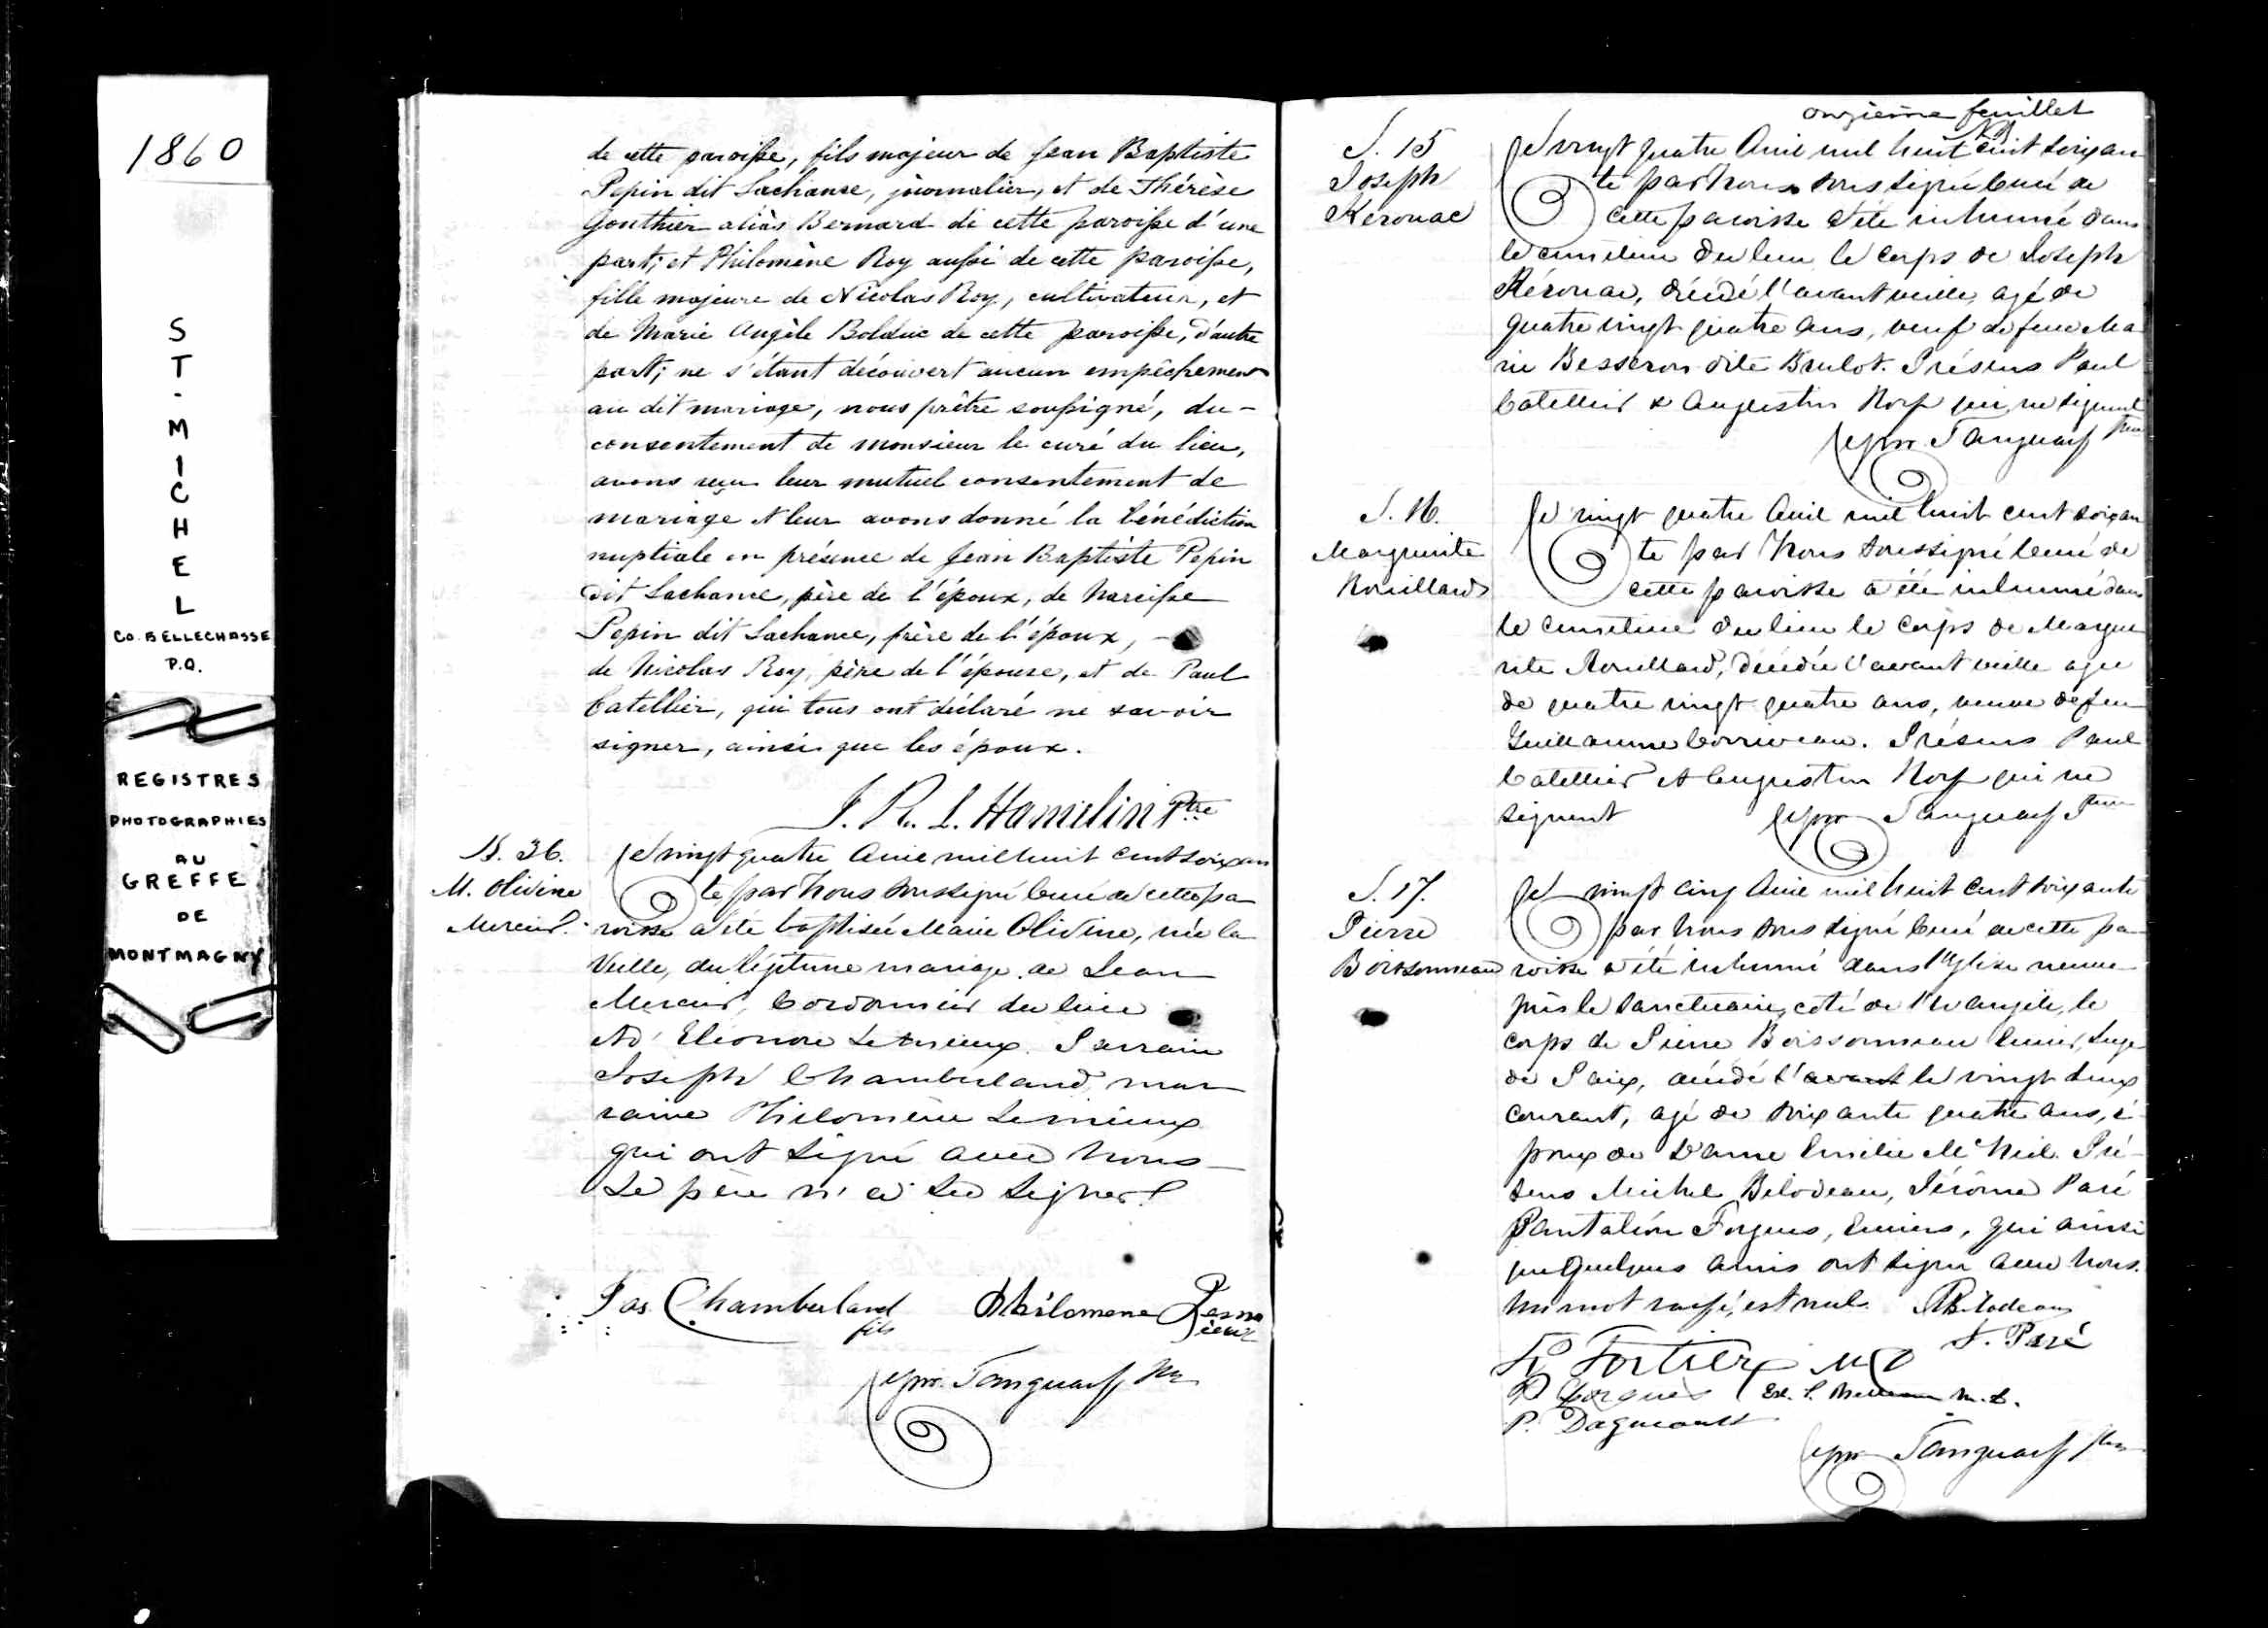 1860
ST-MICHEL
CO. BELLECHASSE
P.Q.
REGISTRES
PHOTOGRAPHIES
AU
GREFFE
DE
MONTMAGNY
de cette paroisse, fils majeur de Jean Baptiste
Pepin dit Lachance, journalier, et de Thérèse
Gonthier aliàs Bernard de cette paroisse d'une
part; et Philomène Roy aussi de cette paroisse,
fille majeure de Nicolas Roy, cultivateur, et
de Marie Angèle Bolduc de cette paroisse, d'autre
part; ne s'étant découvert aucun empêchement
au dit mariage, nous prêtre soussigné, du-
consentement de monsieur le curé du lieu,
avons reçu leur mutuel consentement de
mariage et leur avons donné la bénédiction
nuptiale en présence de Jean Baptiste Pepin
dit Lachance, père de l'époux, de Narcisse
Pepin dit Lachance, frère de l'époux, -
de Nicolas Roy, père de l'épouse, et de Paul
Catellier, qui tous ont déclaré ne savoir
signer, ainsi que les époux.
J. R. L. Hamelin Ptre
B. 36.
M. Olivine
Mercier.
Le vingt quatre Avril mil huit cent soixan
te par Nous soussigné Curé de cette pa
roisse a été baptisée Marie Olivine, née la
Veille, du légitime mariage de Jean
Mercier, Cordonnier du lieu
et d'Eléonore Lemieux. Parrain
Joseph Chamberland, mar
raine Philomène Lemieux
qui ont signé avec Nous
Le père n'a su signer.
Jos. Chamberland fils
Philomene Lemieux
Tanguay Ptre
onzième feuillet
S. 15
Joseph
Kérouac
Le vingt quatre Avril mil huit cent soixan
te par Nous soussigné Curé de
cette paroisse a été inhumé dans
le cimetière du lieu le corps de Joseph
Kérouac, décédé l'avant veille, agé de
quatre vingt quatre ans, veuf de feue Ma
rie Besseron dite Brulot. Présens Paul
Catellier & Augustin Roy qui ne signent
Tanguay Ptre
S. 16.
Marguerite
Rouillard
Le vingt quatre Avril mil huit cent soixan
te par Nous soussigné Curé de
cette paroisse a été inhumé dans
le cimetière du lieu le corps de Margue
rite Rouillard, décédée l'avant veille agée
de quatre vingt quatre ans, veuve de feu
Guillaume Corriveau. Présens Paul
Catellier et Augustin Roy qui ne
signent
Tanguay Ptre
S. 17.
Pierre
Boissonneau
Le vingt cinq Avril mil huit cent soixante
par Nous soussigné Curé de cette pa
roisse a été inhumé dans l'Eglise neuve
près le sanctuaire, coté de l'Evangile, le
corps de Pierre Boissonneau Ecuier, Juge
de Paix, décédé l'avant le vingt deux
courant, agé de soixante quatre ans, é
poux de Dame Emélie McNeil. Pré
sens Michel Bilodeau, Jérôme Paré
Pantaléon Forgues, Ecuiers, qui ainsi
que quelques amis ont signé avec Nous.
Un mot rayé, est nul.
Bilodeau
J. Paré
Fortier MD
P. Forgues
P. Dagneault
Tanguay Ptre